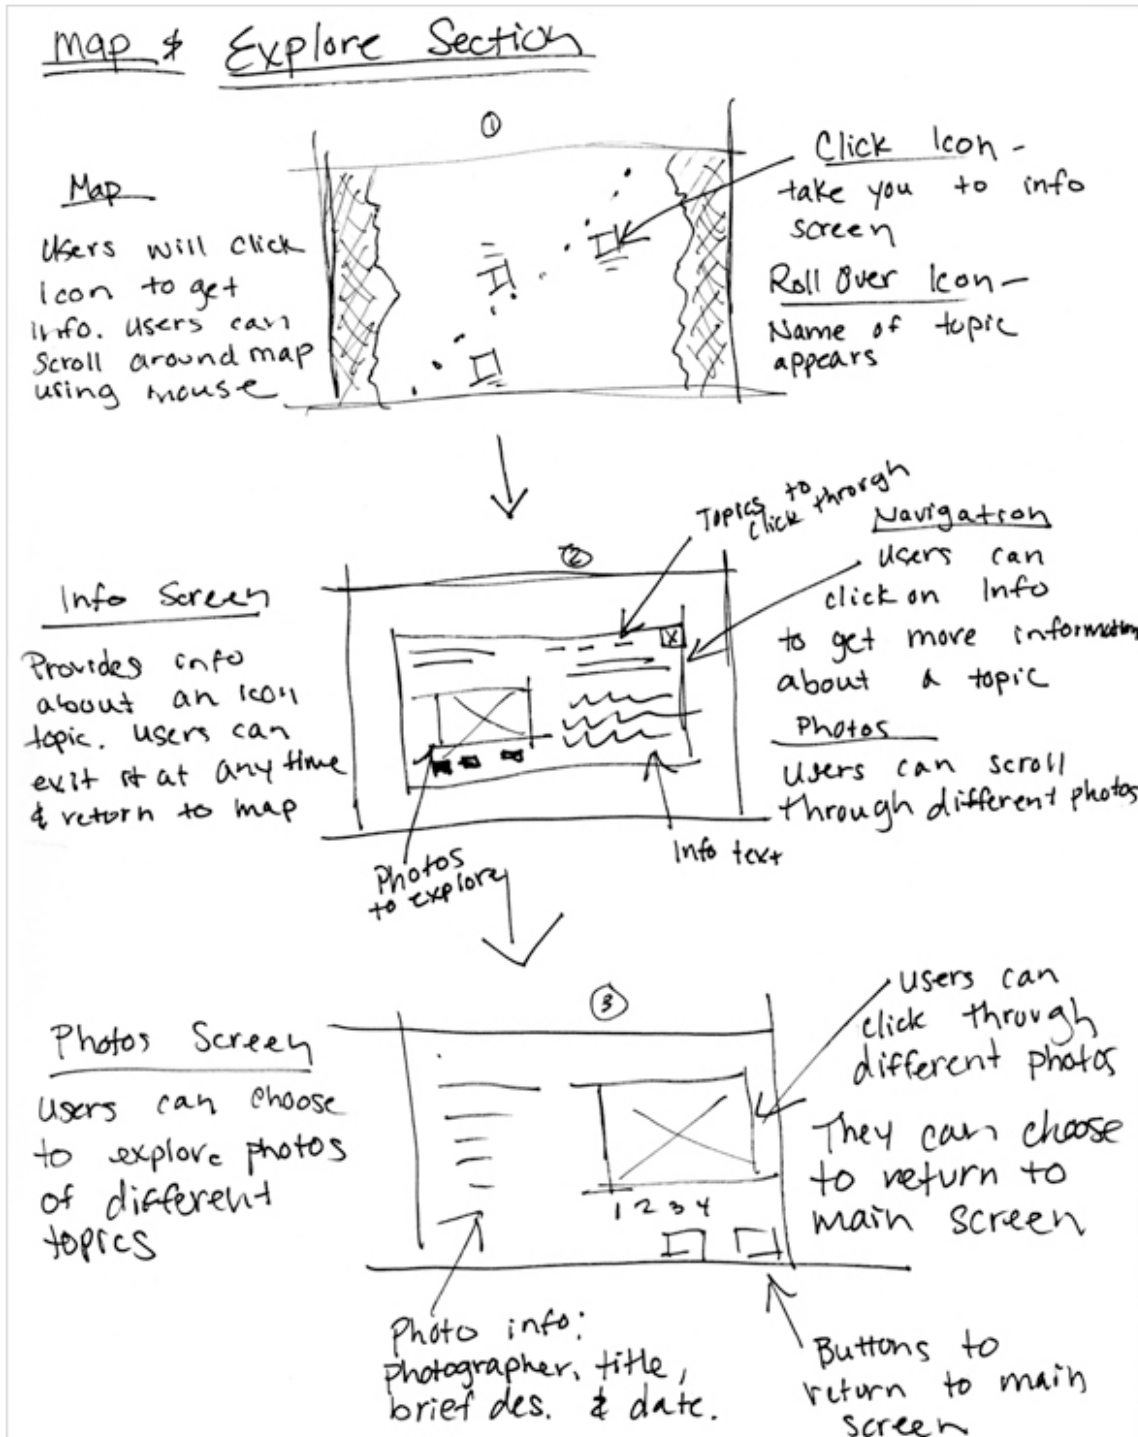 Map & Explore Section
①
Map
Users will click
Icon to get
info. Users can
Scroll around map
using mouse
Click Icon -
take you to info
screen
Roll Over Icon -
Name of topic
appears
②
Topics to
click through
Info Screen
Provides info
about an icon
topic. Users can
exit it at any time
& return to map
X
Navigation
Users can
click on Info
to get more information
about a topic
Photos
Users can scroll
through different photos
Photos
to explore
Info text
③
Photos Screen
Users can choose
to explore photos
of different
topics
1 2 3 4
Users can
click through
different photos
They can choose
to return to
main screen
Photo info:
Photographer, title,
brief des. & date.
Buttons to
return to main
screen